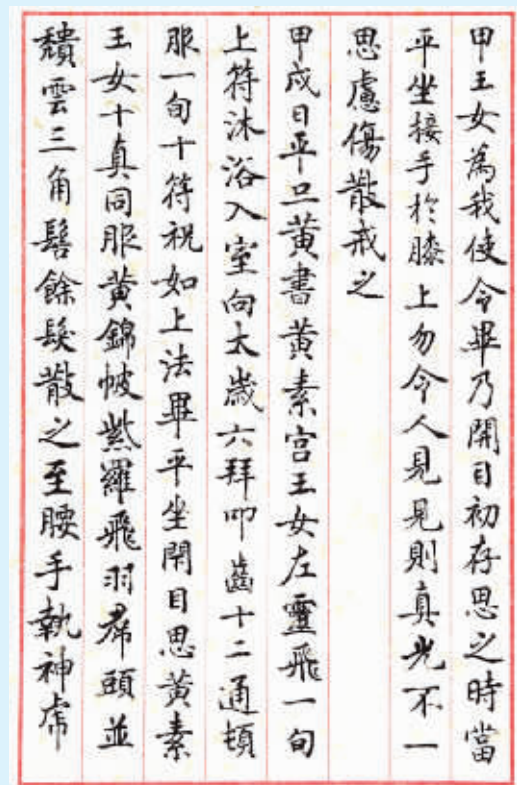 甲玉女為我使令畢乃開目初存思之時當
平坐接手於膝上勿令人見見則真光不一
思慮傷散戒之
甲戌日平旦黃書黃素宮玉女左靈飛一旬
上符沐浴入室向太歲六拜叩齒十二通頓
服一旬十符祝如上法畢平坐閉目思黃素
玉女十真同服黃錦帔紫羅飛羽帬頭並
頹雲三角髻餘髮散之至腰手執神虎